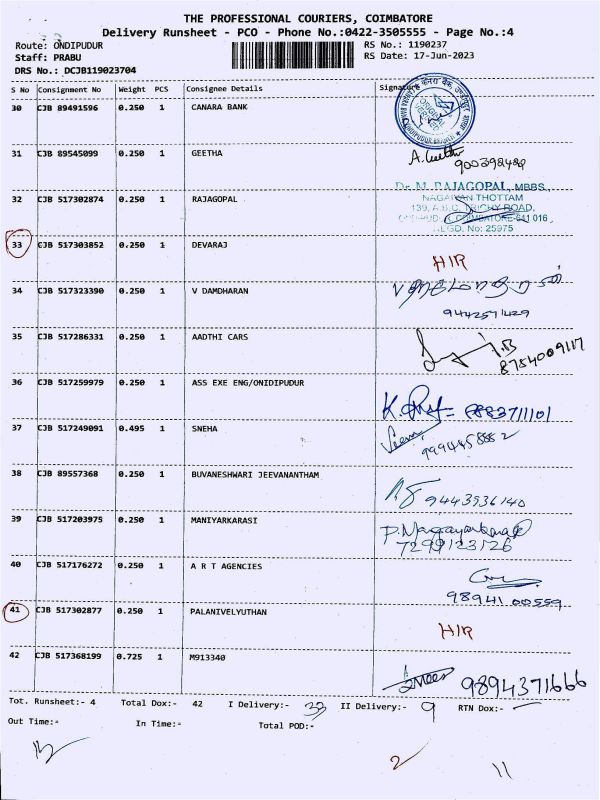 THE PROFESSIONAL COURIERS, COIMBATORE
Delivery Runsheet - PCO - Phone No.:0422-3505555 - Page No.:4
Route: ONDIPUDUR RS No.: 1190237
Staff: PRABU RS Date: 17-Jun-2023
DRS No.: DCJB119023704
S No Consignment No Weight PCS Consignee Details Signature
30 CJB 89491596 0.250 1 CANARA BANK
31 CJB 89545099 0.250 1 GEETHA A. Geetha
32 CJB 517302874 0.250 1 RAJAGOPAL Dr. N. RAJAGOPAL, MBBS.,
THOTTAM
TRICHY ROAD,
COIMBATORE-641 016
REGD. No: 25975
33 CJB 517303852 0.250 1 DEVARAJ HIR
34 CJB 517323390 0.250 1 V DAMDHARAN
9442571429
35 CJB 517286331 0.250 1 AADTHI CARS
8754009117
36 CJB 517259979 0.250 1 ASS EXE ENG/ONIDIPUDUR
8883711101
37 CJB 517249091 0.495 1 SNEHA
9994458882
38 CJB 89557368 0.250 1 BUVANESHWARI JEEVANANTHAM
9443536140
39 CJB 517203975 0.250 1 MANIYARKARASI
7299123126
40 CJB 517176272 0.250 1 A R T AGENCIES
98941 00559
41 CJB 517302877 0.250 1 PALANIVELYUTHAN HIR
42 CJB 517368199 0.725 1 M913340 9894371666
Tot. Runsheet:- 4 Total Dox:- 42 I Delivery:- 33 II Delivery:- 9 RTN Dox:- —
Out Time:- In Time:- Total POD:-
2 11